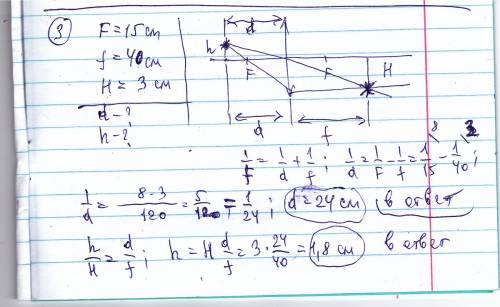 3
F = 15 cm
f = 40 см
H = 3 см
d - ?
h - ?
d
h F F H
d f
1/F = 1/d + 1/f ; 1/d = 1/F - 1/f = 1/15 - 1/40 ;
8 3
1/d = (8-3)/120 = 5/120 = 1/24 ; d = 24 см в ответ
h/H = d/f ; h = H d/f = 3 · 24/40 = 1,8 см в ответ